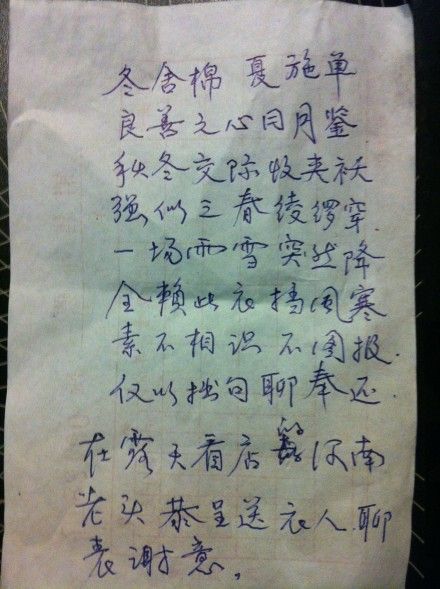 冬舍棉 夏施单
良善之心日月鉴
秋冬交际收夹袄
强似三春绫缪穿
一场雨雪突然降
全赖此衣挡风寒
素不相识不图报.
仅以拙句聊奉还.
在露天看店的河南
老头恭呈送衣人.聊
表谢意。